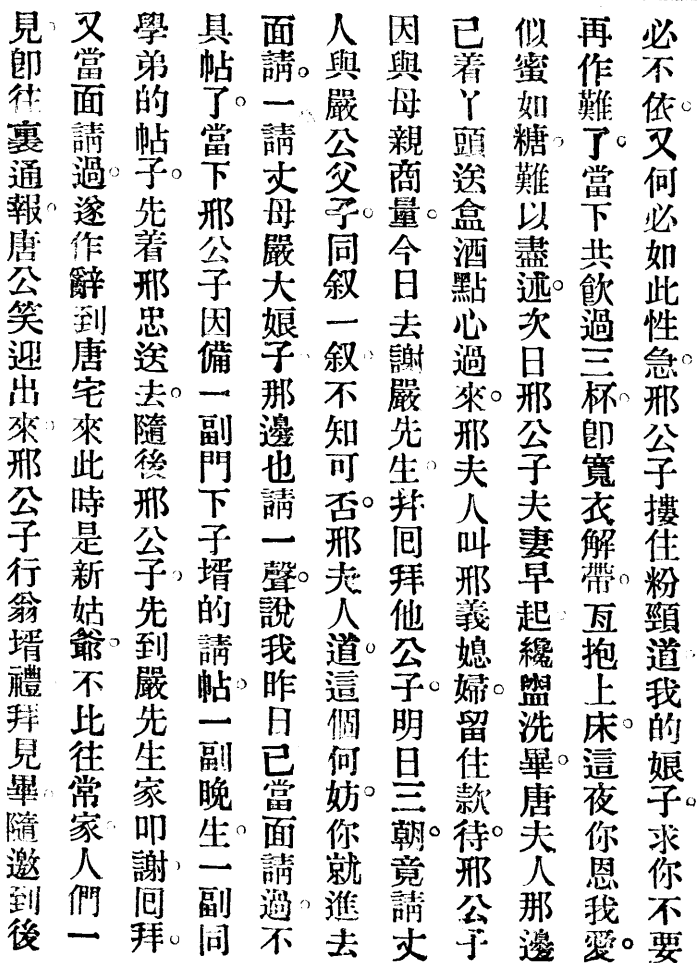 必不依。又何必如此性急。邢公子摟住粉頸道我的娘子。求你不要
再作難了。當下共飮過三杯。卽寬衣解帶。亙抱上床。這夜你恩我愛。
似蜜如糖。難以盡述。次日邢公子夫妻早起。纔盥洗畢。唐夫人那邊
已着丫頭送盒酒點心過來。邢夫人叫邢義媳婦。留住款待。邢公子
因與母親商量。今日去謝嚴先生。幷囘拜他公子。明日三朝。竟請丈
人與嚴公父子。同叙一叙。不知可否。邢夫人道。這個何妨。你就進去
面請。一請丈母嚴大娘子。那邊也請一聲。說我昨日已當面請過。不
具帖了。當下邢公子因備一副門下子壻的請帖。一副晚生。一副同
學弟的帖子。先着邢忠送去。隨後邢公子。先到嚴先生家叩謝。囘拜。
又當面請過。遂作辭到唐宅來。此時是新姑爺。不比往常。家人們一
見。卽往裏通報。唐公笑迎出來。邢公子行翁壻禮。拜見畢。隨邀到後